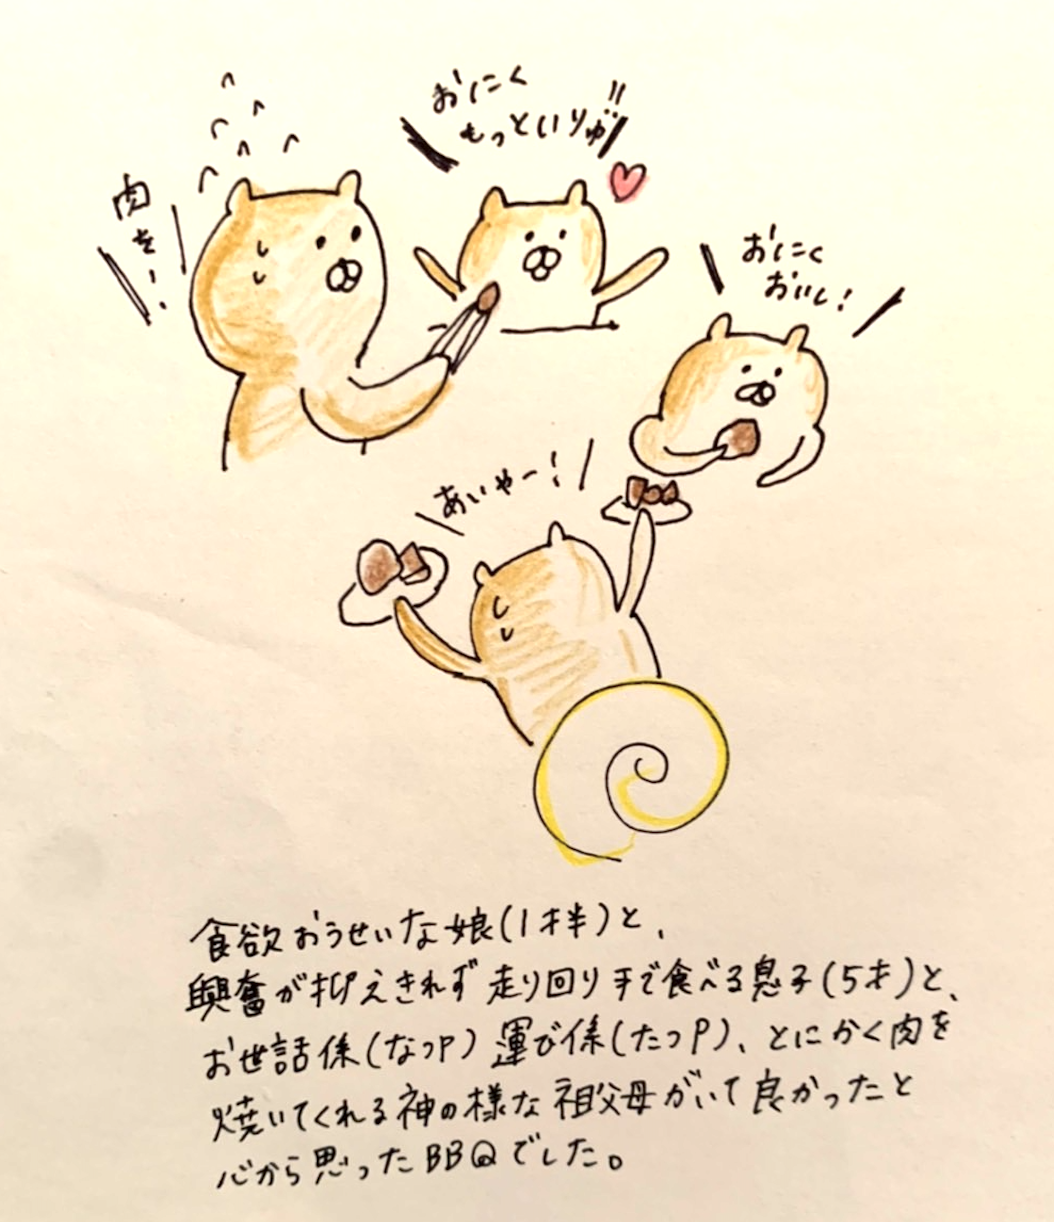 おにく
もっといりゅ!!
肉
を!!
おにく
おいし!
あいやー!
食欲おうせいな娘(1才半)と、
興奮が抑えきれず走り回り手で食べる息子(5才)と、
お世話係(なっP)運び係(たっP)、とにかく肉を
焼いてくれる神の様な祖父母がいて良かったと
心から思ったBBQでした。